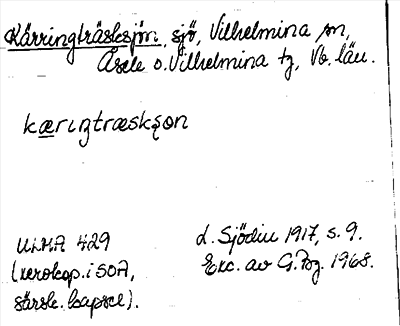 Kärringträsksjön, sjö, Vilhelmina sn,
Åsele o. Vilhelmina tg, Vb. län.
kærıŋtræskʂon
ULMA 429
(xerokop. i SOA,
särsk. kapsel).
d. Sjödin 1917, s. 9.
Exc. av G. Pg. 1968.